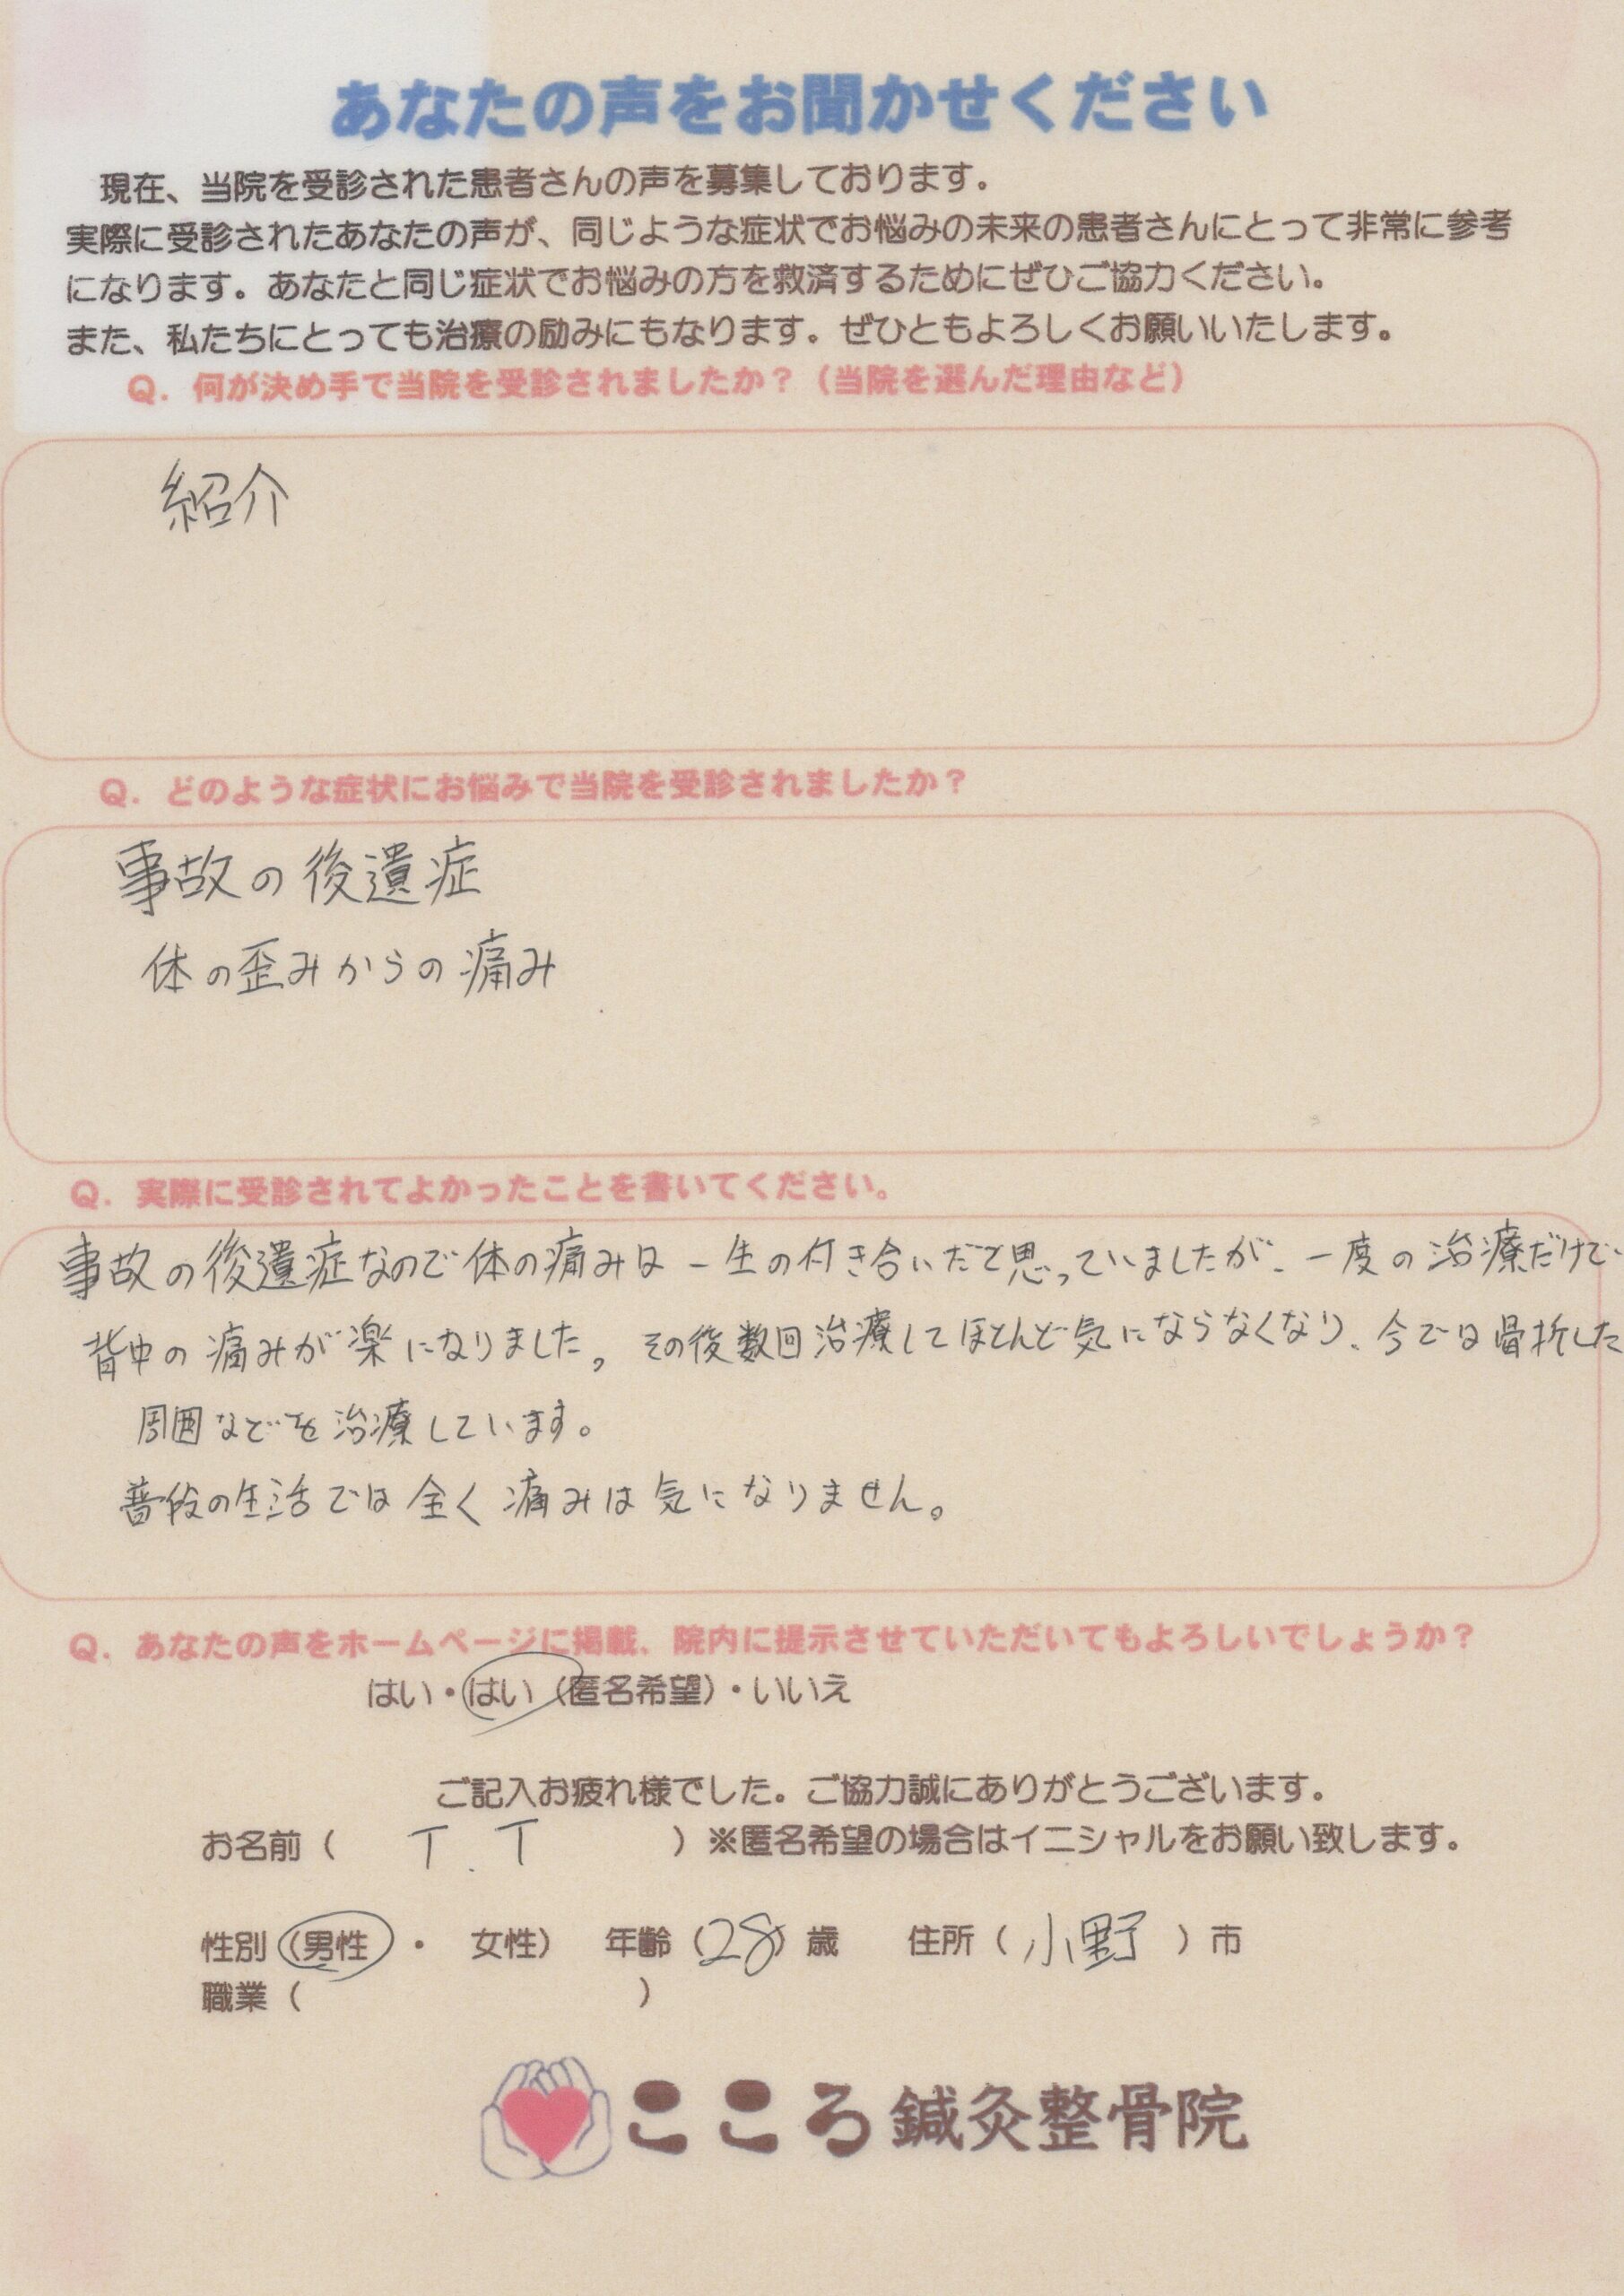 あなたの声をお聞かせください
現在、当院を受診された患者さんの声を募集しております。
実際に受診されたあなたの声が、同じような症状でお悩みの未来の患者さんにとって非常に参考
になります。あなたと同じ症状でお悩みの方を救済するためにぜひご協力ください。
また、私たちにとっても治療の励みにもなります。ぜひともよろしくお願いいたします。
Q. 何が決め手で当院を受診されましたか？（当院を選んだ理由など）
紹介
Q. どのような症状にお悩みで当院を受診されましたか？
事故の後遺症
体の歪みからの痛み
Q. 実際に受診されてよかったことを書いてください。
事故の後遺症なので体の痛みは一生の付き合いだと思っていましたが、一度の治療だけで
背中の痛みが楽になりました。その後数回治療してほとんど気にならなくなり、今では骨折した
周囲などを治療しています。
普段の生活では全く痛みは気になりません。
Q. あなたの声をホームページに掲載、院内に提示させていただいてもよろしいでしょうか？
はい・はい（匿名希望）・いいえ
ご記入お疲れ様でした。ご協力誠にありがとうございます。
お名前（ T.T ）※匿名希望の場合はイニシャルをお願い致します。
性別（男性 ・ 女性） 年齢（28）歳 住所（小野）市
職業（ ）
こころ鍼灸整骨院